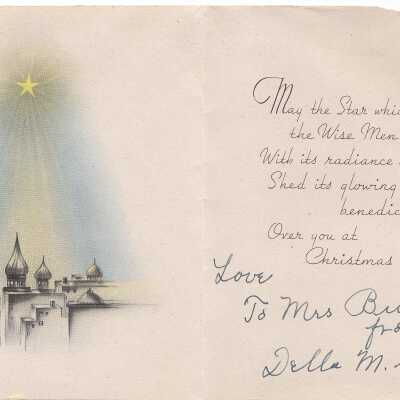 May the Star whic
the Wise Men
With its radiance
Shed its glowing
benedic
Over you at
Christmas
Love
To Mrs
fro
Della M.